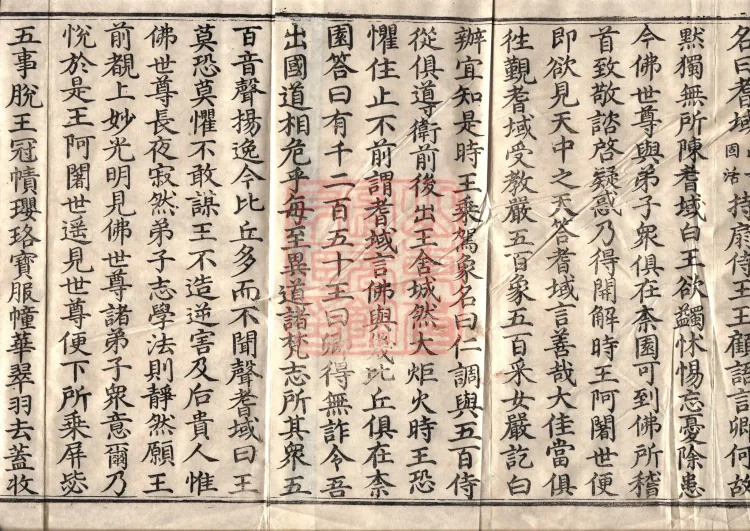 名曰耆域固活持扇侍王王顧語言卿何故
黙獨無所陳耆域白王欲蠲怵惕忘憂除患
今佛世尊與弟子衆俱在柰園可到佛所稽
首致敬諮啓疑惑乃得開解時王阿闍世便
即欲見天中之天答耆域言善哉大佳當俱
徃覲耆域受教嚴五百象五百采女嚴訖白
辦宜知是時王乘駕象名曰仁調與五百侍
從俱導衛前後出王舍城然大炬火時王恐
懼住止不前謂耆域言佛與幾比丘俱在柰
園答曰有千二百五十王曰卿得無詐令吾
出國道相危乎每至異道諸梵志所其衆五
百音聲揚逸今比丘多而不聞聲耆域曰王
莫恐莫懼不敢謀王不造逆害及后貴人惟
佛世尊長夜寂然弟子志學法則靜然願王
前覩上妙光明見佛世尊諸弟子衆意爾乃
恱於是王阿闍世遥見世尊便下所乘屏毖
五事脫王冠幘瓔珞寶服幢華翠羽去蓋收